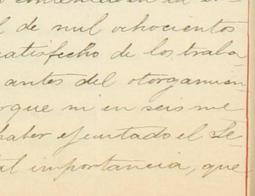 l de mil ochocientos
satisfecho de los traba
antes del otorgamien
orque ni en seis me
haber ejecutado el Se
al importancia, que